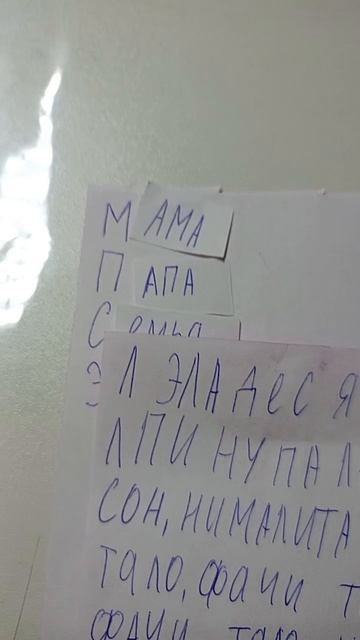 МАМА
ПАПА
С емья
Э
Л ЭЛА ДЕС Я
ЛПИ НУ ПА Л
СОН, НИМАЛИТА
ТАЛО, ФАЧИ Т
ФАЧИ ТАЛО